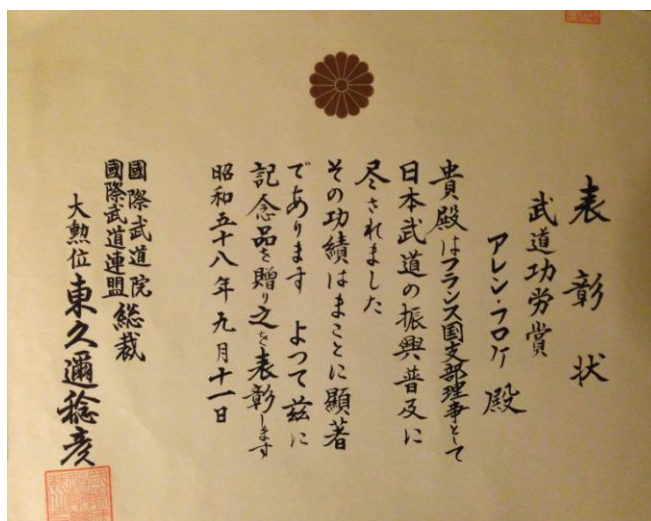 表彰状
武道功労賞
アレン・フロケ 殿
貴殿はフランス国支部理事として
日本武道の振興普及に
尽されました
その功績はまことに顕著
であります よつて茲に
記念品を贈り之を表彰します
昭和五十八年九月十一日
國際武道院
國際武道連盟
総裁
大勲位 東久邇稔彦